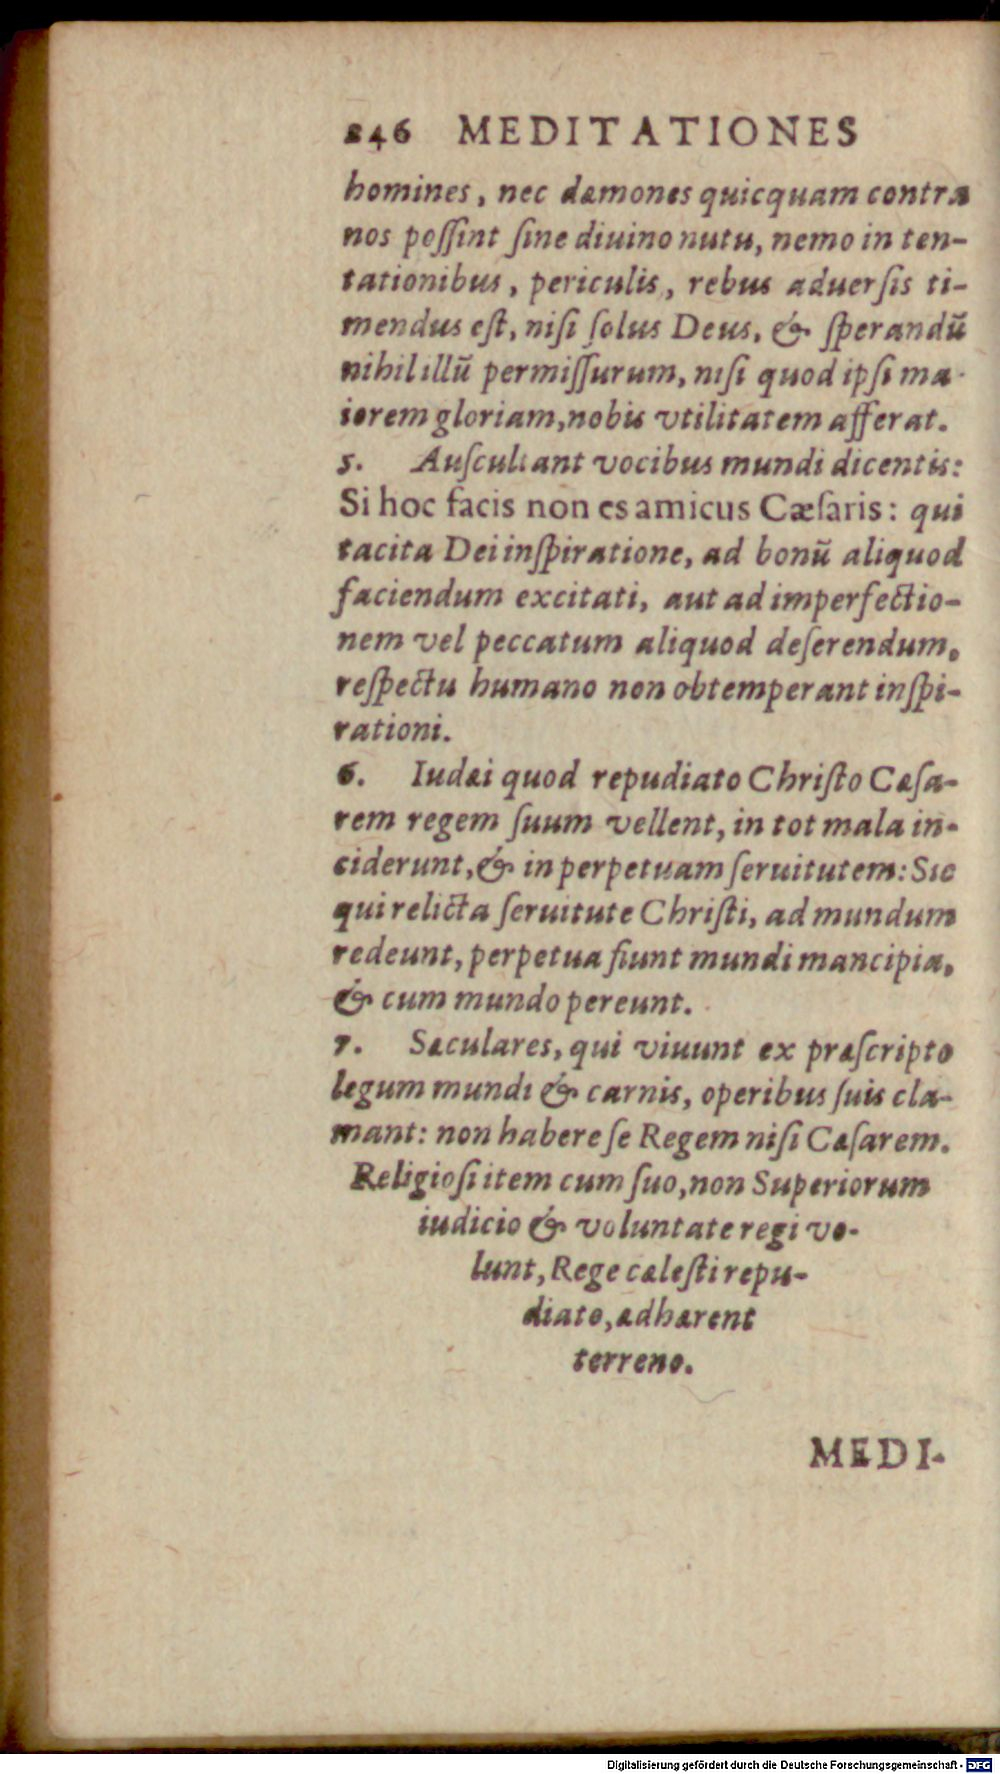 246 MEDITATIONES
homines, nec dæmones quicquam contra
nos poſſint ſine diuino nutu, nemo in ten-
tationibus, periculis, rebus aduerſis ti-
mendus eſt, niſi ſolus Deus, & ſperandū
nihil illū permiſſurum, niſi quod ipſi ma-
iorem gloriam, nobis vtilitatem afferat.
5. Auſcultant vocibus mundi dicentis:
Si hoc facis non es amicus Cæſaris: qui
tacita Dei inſpiratione, ad bonū aliquod
faciendum excitati, aut ad imperfectio-
nem vel peccatum aliquod deſerendum,
reſpectu humano non obtemperant inſpi-
rationi.
6. Iudæi quod repudiato Chriſto Cæſa-
rem regem ſuum vellent, in tot mala in-
ciderunt, & in perpetuam ſeruitutem: Sic
qui relicta ſeruitute Chriſti, ad mundum
redeunt, perpetua fiunt mundi mancipia,
& cum mundo pereunt.
7. Sæculares, qui viuunt ex præſcripto
legum mundi & carnis, operibus ſuis cla-
mant: non habere ſe Regem niſi Cæſarem.
Religioſi item cum ſuo, non Superiorum
iudicio & voluntate regi vo-
lunt, Rege cæleſti repu-
diato, adhærent
terreno.
MEDI-
Digitalisierung gefördert durch die Deutsche Forschungsgemeinschaft - DFG